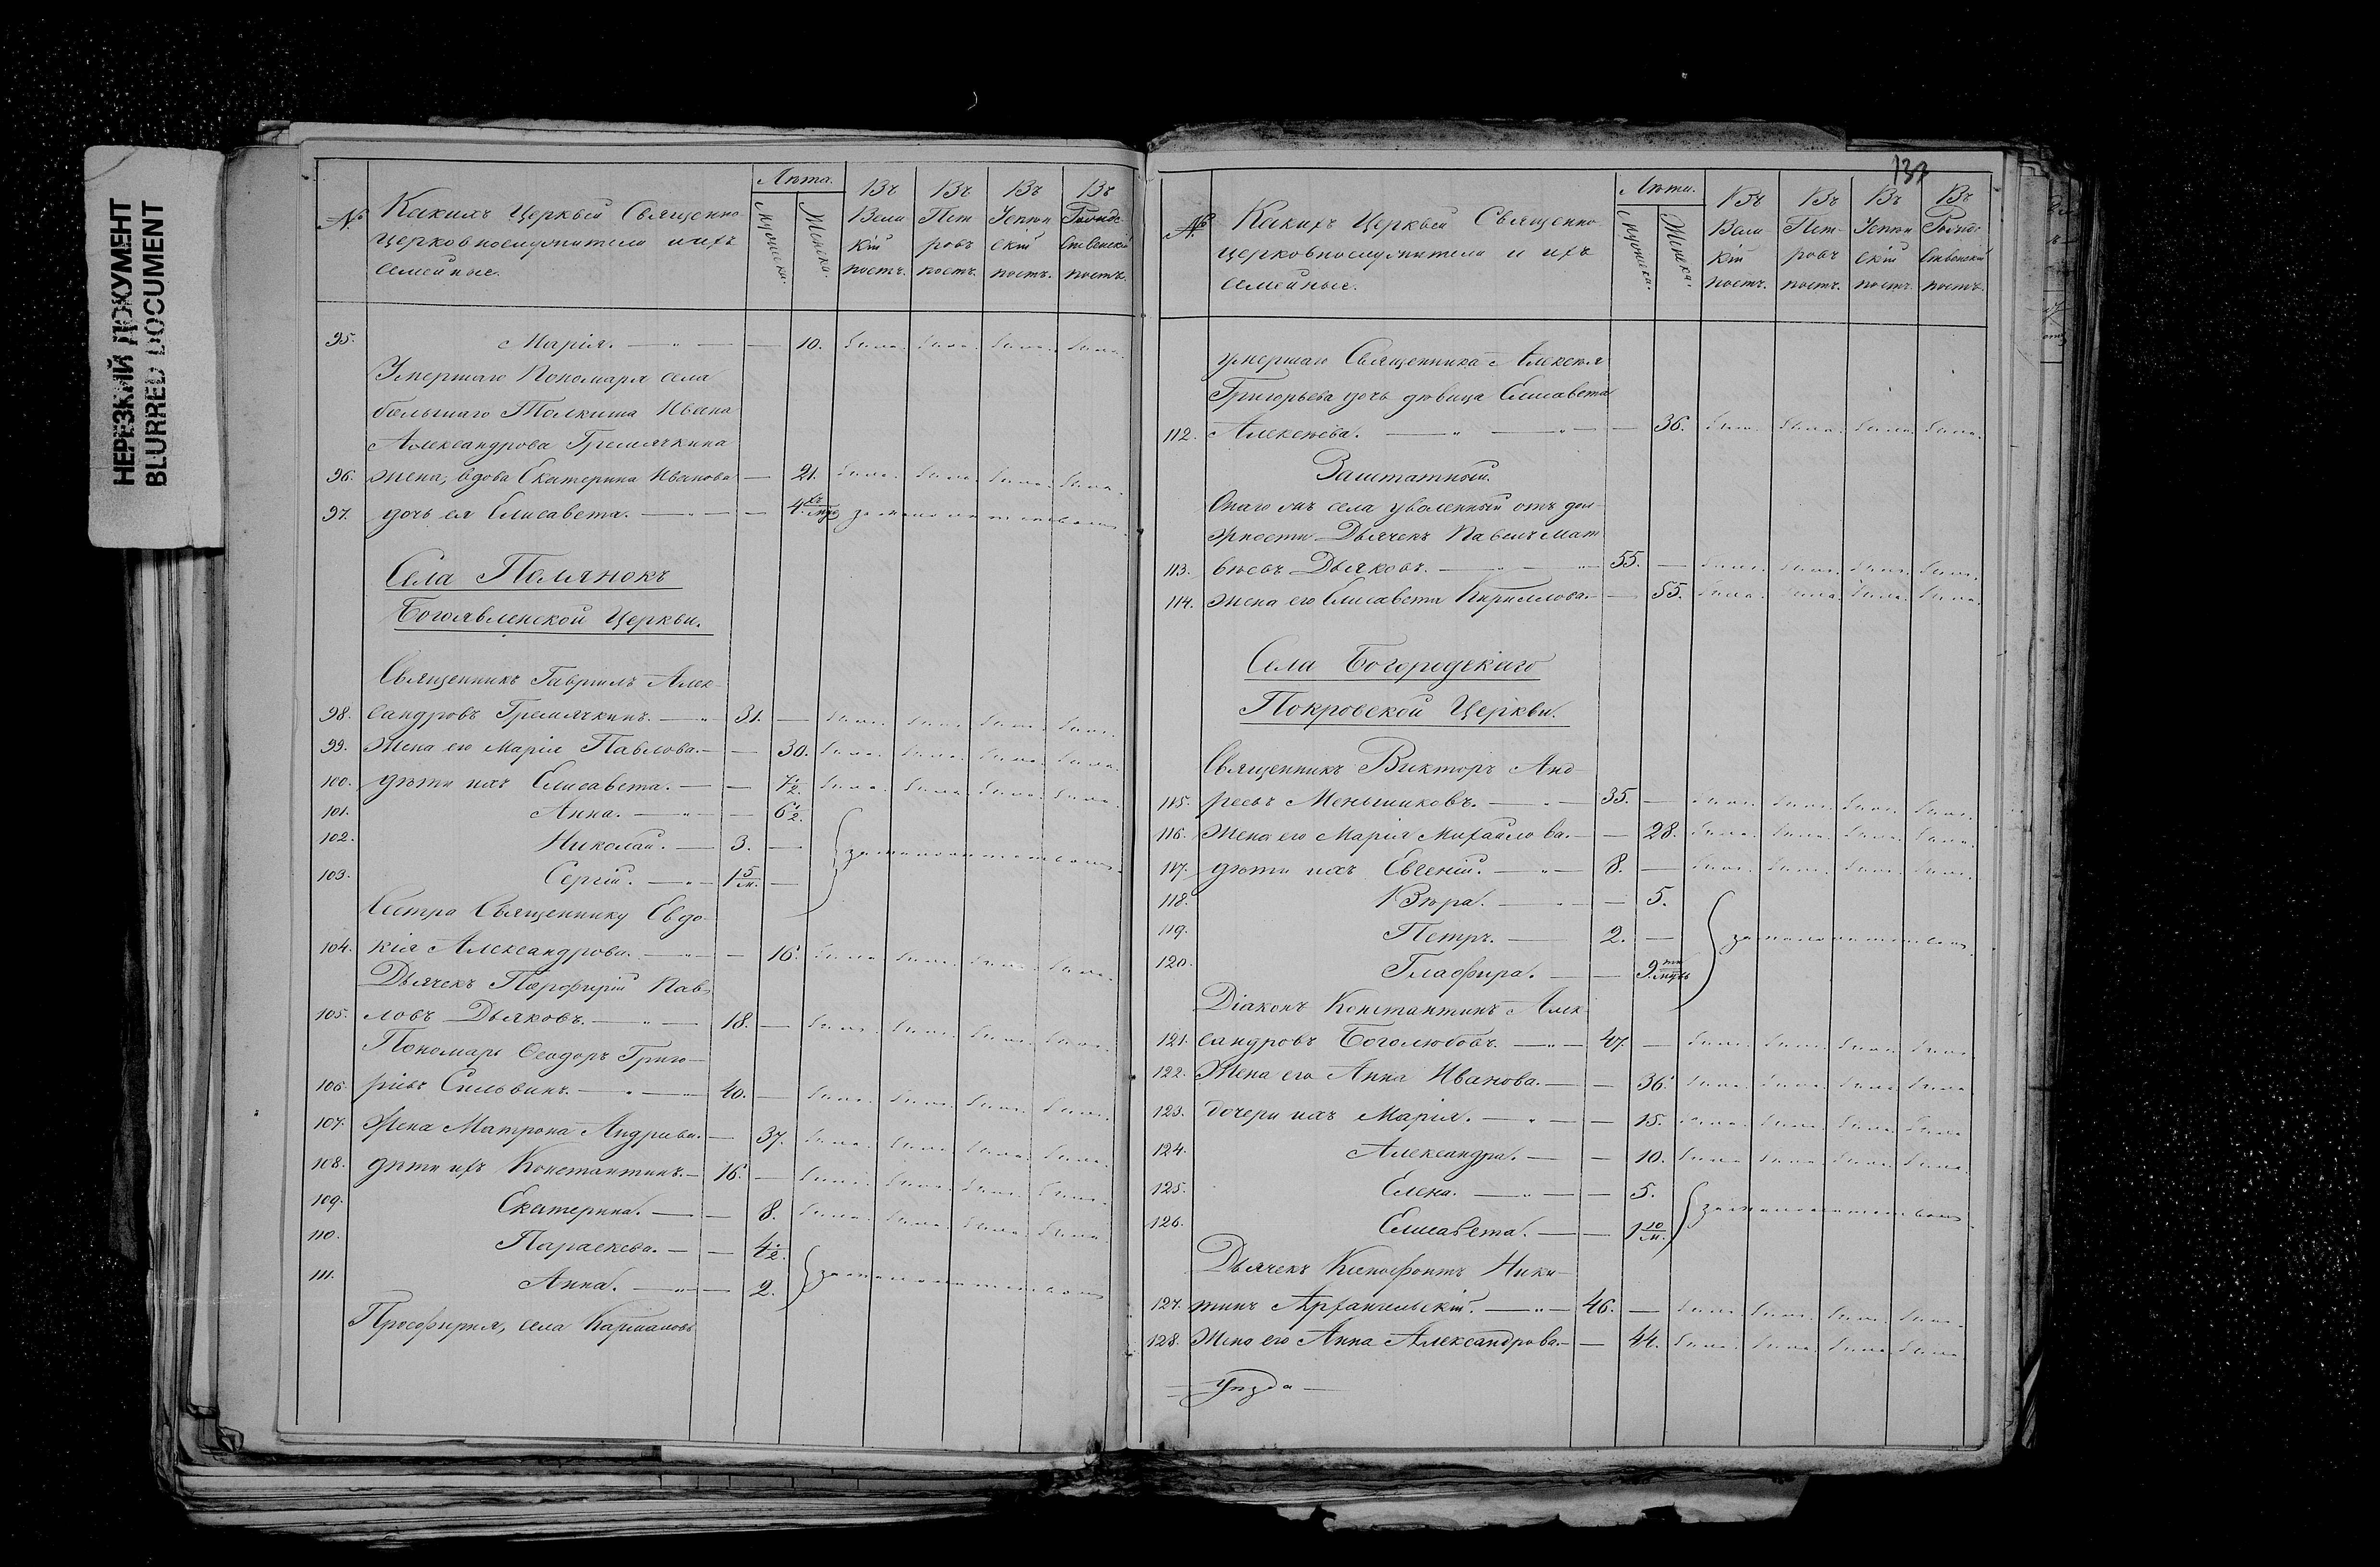 НЕРЕЗКИЙ ДОКУМЕНТ
BLURRED DOCUMENT
№ Какихъ Церквей Священно-
церковнослужители и ихъ
семейные.
Лѣта.
Мужеска. Женска.
Въ Вели кій постъ. Въ Пет ровъ постъ. Въ Успен скій постъ. Въ Рожде ственскій постъ.
95. Марія. — 10. были. были. были. были.
Умершаго Пономаря села
большаго Толкиша Ивана
Александрова Гремячкина
96. жена, вдова Екатерина Иванова — 21. были. были. были. были.
97. дочь ея Елисавета. — 4. за малолѣтствомъ
Села Полянокъ
Богоявленской Церкви.
Священникъ Гавріилъ Алек-
98. сандровъ Гремячкинъ. — 31. — были. были. были. были.
99. Жена его Марія Павлова. — 30. были. были. были. были.
100. дѣти ихъ Елисавета. — 7 1/2. были. были. были. были.
101. Анна. — 6 1/2.
102. Николай. — 3. — за малолѣтствомъ
103. Сергій. — 1 5/м. —
Сестра Священнику Евдо-
104. кія Александрова. — 16. были. были. были. были.
Дьячекъ Порфирій Пав-
105. ловъ Дьяковъ. — 18. — были. были. были. были.
Пономарь Ѳеодоръ Григо-
106. рьевъ Сильвинъ. — 40. — были. были. были. были.
107. Жена Матрона Андреева. — 37. были. были. были. были.
108. дѣти ихъ Константинъ. — 16. — были. были. были. были.
109. Екатерина. — 8. были. были. были. были.
110. Параскева. — 4 1/2.
111. Анна. — 2. за малолѣтствомъ
Просфирня, села
137
№ Какихъ Церквей Священно-
церковнослужители и ихъ
семейные.
Лѣта.
Мужеска. Женска.
Въ Вели кій постъ. Въ Пет- ровъ постъ. Въ Успен скій постъ. Въ Рожде ственскій постъ.
умершаго Священника Алексѣя
Григорьева дочь дѣвица Елисавета
112. Алексѣева. — 36. были. были. были. были.
Заштатный.
Онаго жъ села уволенный отъ дол-
жности Дьячекъ Павелъ Мат
113. вѣевъ Дьяковъ. — 55. — были. были. были. были.
114. жена его Елисавета Кириллова. — 55. были. были. были. были.
Села Богородскаго
Покровской Церкви.
Священникъ Викторъ Анд-
115. реевъ Меньшиковъ. — 35. — были. были. были. были.
116. Жена его Марія Михайлова. — 28. были. были. были. были.
117. дѣти ихъ Евгеній. — 8. — были. были. были. были.
118. Вѣра. — 5.
119. Петръ. — 2. — за малолѣтствомъ
120. Глафира. — 9.
Діаконъ Константинъ Алек-
121. сандровъ Боголюбовъ. — 47. — были. были. были. были.
122. Жена его Анна Иванова. — 36. были. были. были. были.
123. дочери ихъ Марія. — 15. были. были. были. были.
124. Александра. — 10. были. были. были. были.
125. Елена. — 5. за малолѣтствомъ
126. Елисавета. — 1 10/м.
Дьячекъ Ксенофонтъ Ники-
127. тинъ Архангельскій. — 46. — были. были. были. были.
128. Жена его Анна Александрова. — 44. были. были. были. были.
— уѣзда —